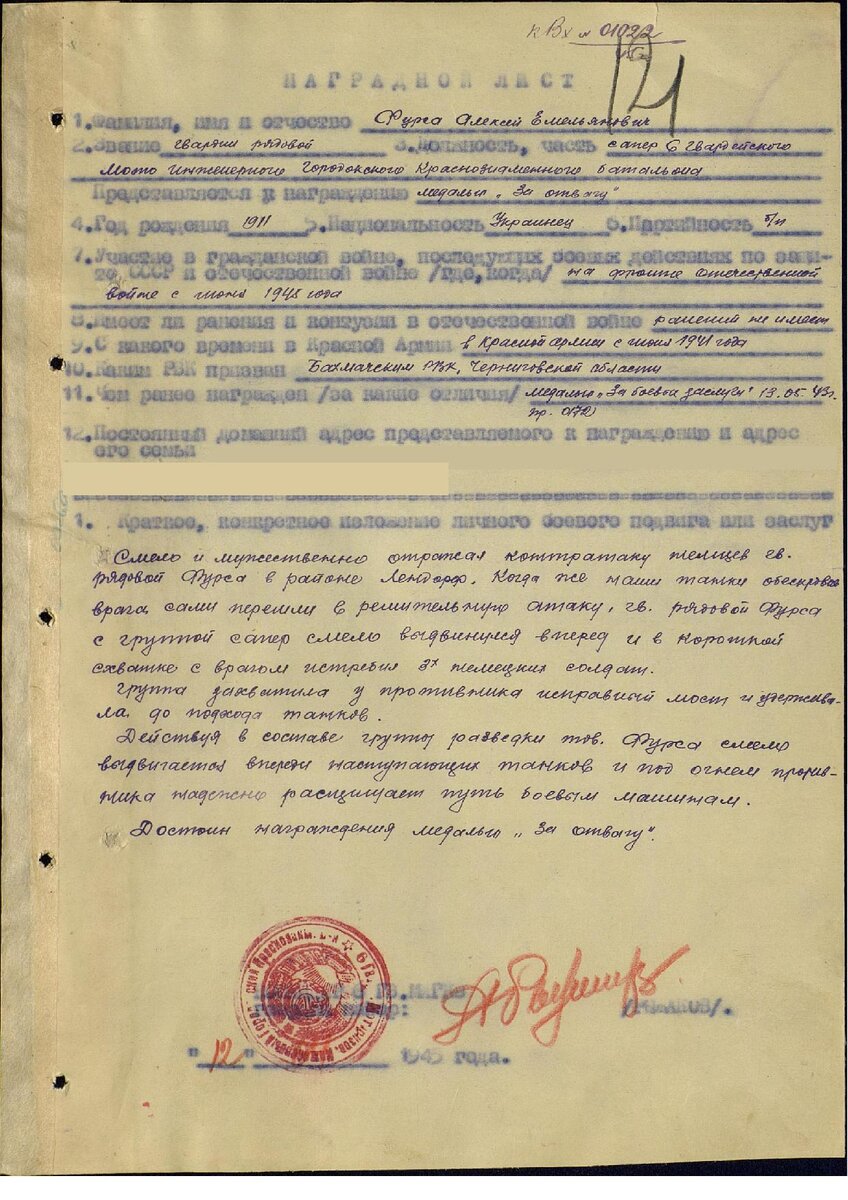 к Вх № 01022
121
НАГРАДНОЙ ЛИСТ
1. Фамилия, имя и отчество Фурса Алексей Емельянович
2. Звание гвардии рядовой 3. Должность, часть сапер 6 Гвардейского
Мото Инженерного Городокского Краснознаменного Батальона
Представляется к награждению медалью „За отвагу"
4. Год рождения 1911 5. Национальность Украинец 6. Партийность б/п
7. Участие в гражданской войне, последующих боевых действиях по защи-
те СССР и отечественной войне /где, когда/ на фронте отечественной
войне с июня 1941 года
8. Имеет ли ранения и контузии в отечественной войне ранений не имеет
9. С какого времени в Красной Армии в Красной армии с июня 1941 года
10. Каким РВК призван Бахмачским РВК, Черниговской области
11. Чем ранее награжден /за какие отличия/ медалью „За боевые заслуги" 19.05.43г.
пр. 0172
12. Постоянный домашний адрес представляемого к награждению и адрес
его семьи
1. Краткое, конкретное изложение личного боевого подвига или заслуг
Смело и мужественно отражал контратаку немцев гв.
рядовой Фурса в районе Лендорф. Когда же наши танки обескровив
врага, сами перешли в решительную атаку, гв. рядовой Фурса
с группой сапер смело выдвинулся вперед и в короткой
схватке с врагом истребил 3х немецких солдат.
Группа захватила у противника исправный мост и удержива-
ла до подхода танков.
Действуя в составе группы разведки тов. Фурса смело
выдвигается впереди наступающих танков и под огнем против-
ника надежно расчищает путь боевым машинам.
Достоин награждения медалью „За отвагу".
"12" 1945 года.